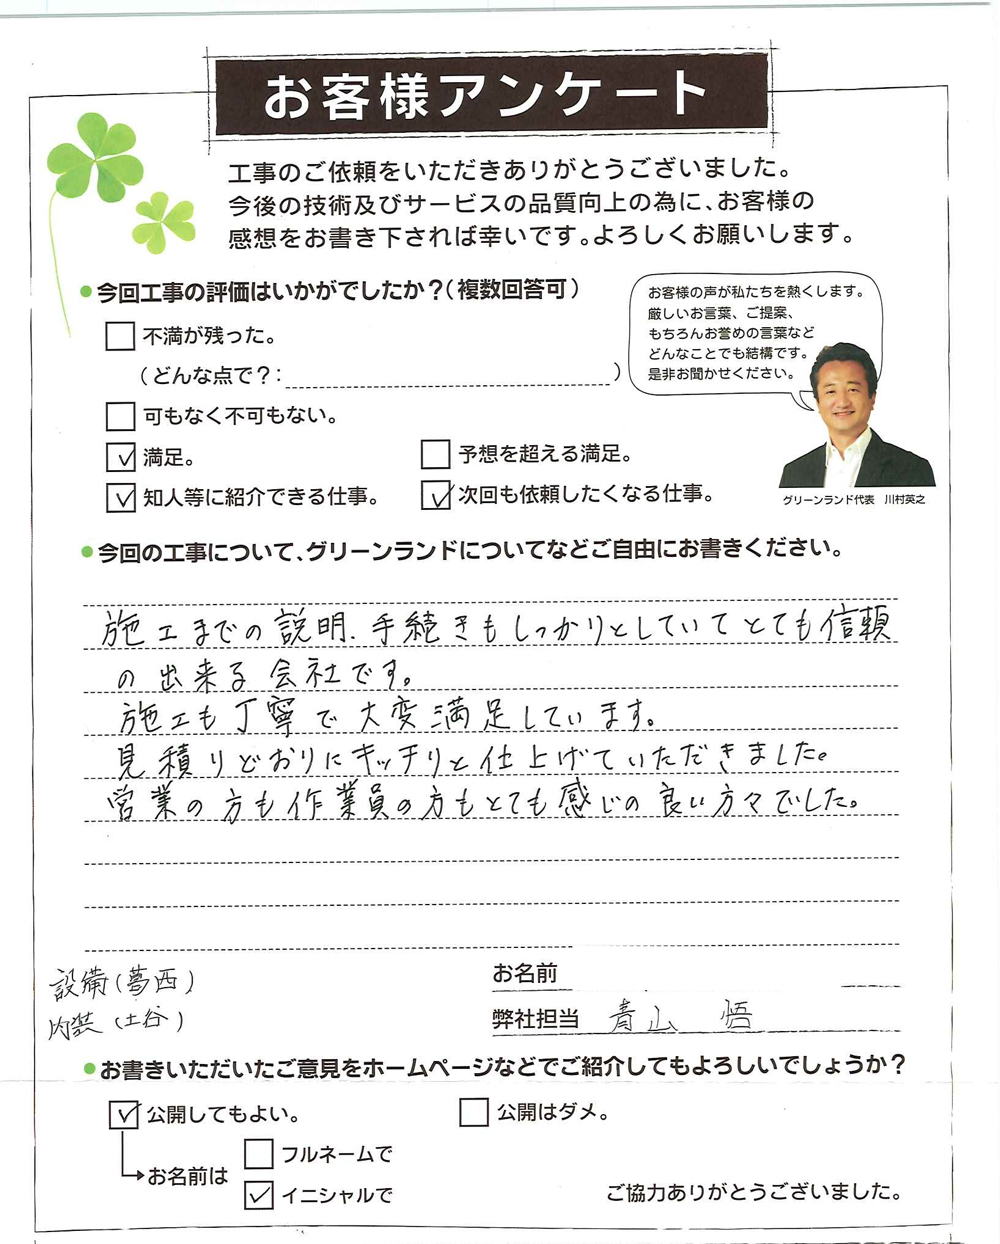 お客様アンケート
工事のご依頼をいただきありがとうございました。
今後の技術及びサービスの品質向上の為に、お客様の
感想をお書き下されば幸いです。よろしくお願いします。
●今回工事の評価はいかがでしたか？（複数回答可）
不満が残った。
（どんな点で？：　　　）
可もなく不可もない。
満足。
予想を超える満足。
知人等に紹介できる仕事。
次回も依頼したくなる仕事。
お客様の声が私たちを熱くします。
厳しいお言葉、ご提案、
もちろんお誉めの言葉など
どんなことでも結構です。
是非お聞かせください。
グリーンランド代表　川村英之
●今回の工事について、グリーンランドについてなどご自由にお書きください。
施工までの説明、手続きもしっかりとしていてとても信頼
の出来る会社です。
施工も丁寧で大変満足しています。
見積りどおりにキッチリと仕上げていただきました。
営業の方も作業員の方もとても感じの良い方々でした。
設備（葛西）
内装（土谷）
お名前
弊社担当　青山　悟
●お書きいただいたご意見をホームページなどでご紹介してもよろしいでしょうか？
公開してもよい。
公開はダメ。
お名前は
フルネームで
イニシャルで
ご協力ありがとうございました。